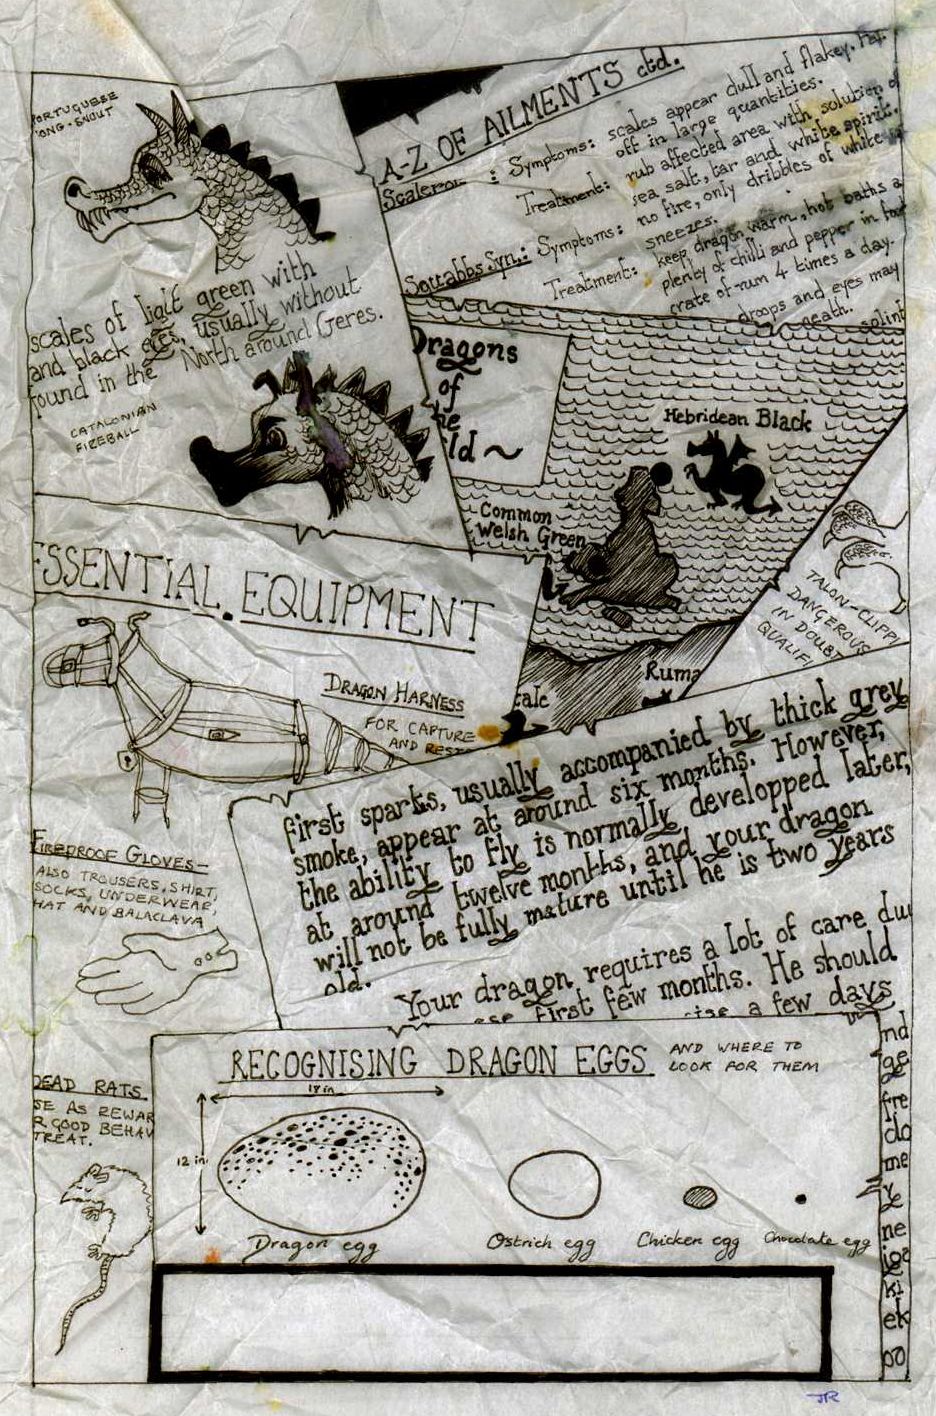 PORTUGUESE
LONG-SNOUT
scales of light green with
and black eyes, usually without
found in the North around Geres.
CATALONIAN
FIREBALL
A-Z OF AILMENTS ctd.
Symptoms: scales appear dull and flakey. Fal
off in large quantities.
Treatment: rub affected area with solution of
sea salt, tar and white spirit.
Scttabbs Syn.: Symptoms: no fire, only dribbles of white
sneezes.
Treatment: keep dragon warm, hot baths a
plenty of chilli and pepper in food
crate of rum 4 times a day.
droops and eyes may
neath.
splint
Dragons
of
the
ild ~
Hebridean Black
Common
Welsh Green
Ruma
TALON-CLIPPI
DANGEROUS
IN DOUBT
QUALIFI
ESSENTIAL EQUIPMENT
DRAGON HARNESS
FOR CAPTURE
AND REST
FIREPROOF GLOVES -
ALSO TROUSERS, SHIRT,
SOCKS, UNDERWEAR,
HAT AND BALACLAVA
first sparks, usually accompanied by thick grey
smoke, appear at around six months. However,
the ability to fly is normally developped later,
at around twelve months, and your dragon
will not be fully mature until he is two years
old.
Your dragon requires a lot of care du
ese first few months. He should
a few days
DEAD RATS
SE AS REWAR
R GOOD BEHAV
TREAT.
RECOGNISING DRAGON EGGS AND WHERE TO
LOOK FOR THEM
18 in
12 in
Dragon egg
Ostrich egg
Chicken egg
Chocolate egg
nd
ge
fre
do
me
y
ne
iga
ki
ek
po
JR